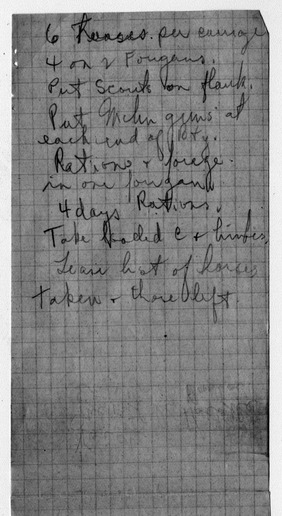 6 horses per carriage
4 on 2 Fourgons.
Put Scouts on flank.
Put Mchn guns at
each end of Bty.
Rations & forage
in one fourgon
4 days Rations.
Take loaded C & limbers
Leave list of horses
taken & those left.